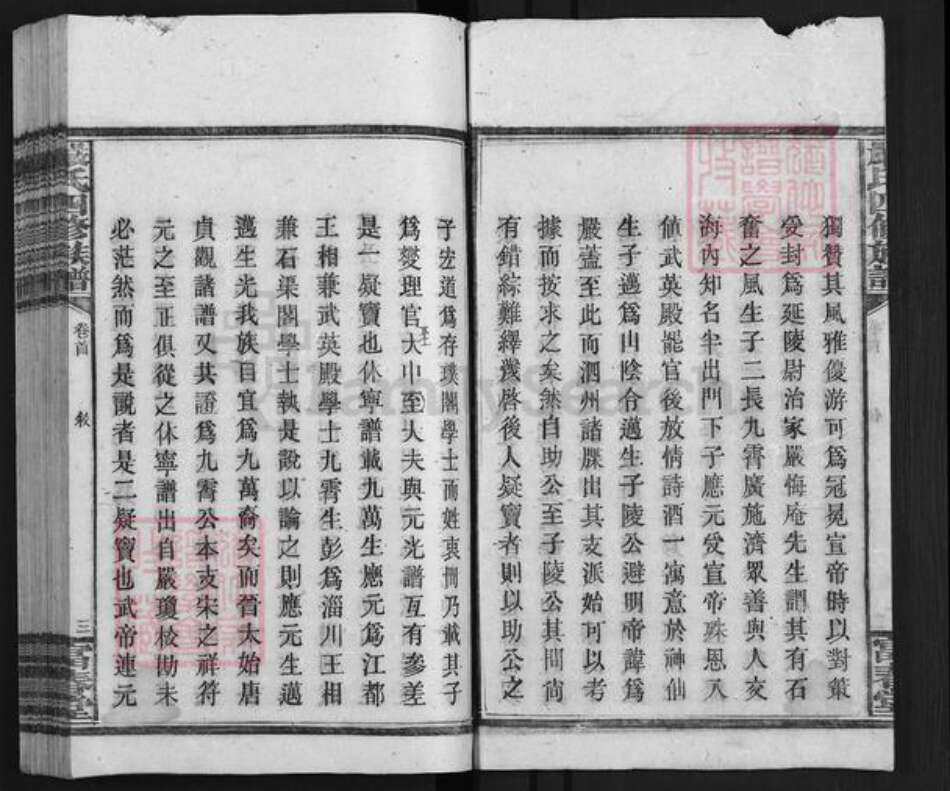 獨贊其風雅優游可爲冠冕宣帝時以對策
受封爲延陵尉治家嚴悔庵先生謂其有石
奮之風生子二長九霄廣施濟眾善與人交
海內知名半出門下子應元受宣帝殊恩入
値武英殿罷官後放情詩酒一寓意於神仙
生子邁爲山陰令邁生子陵公避明帝諱爲
嚴蓋至此而泗州諸牒出其支派始可以考
據而按求之矣然自助公至子陵公其間尙
有錯綜難繹幾啓後人疑竇者則以助公之
嚴氏四修族譜
卷首
敘
三
富春堂
子宏道爲存璞閣學士而姓衷冊乃載其子
爲燮理官大中至大夫與元光譜互有參差
是一疑竇也休寧譜載九萬生應元爲江都
王相兼武英殿學士九霄生彭爲淄川王相
兼石渠閣學士執是說以論之則應元生邁
邁生光我族自宜爲九萬裔矣而晉太始唐
貞觀諸譜又共證爲九霄公本支宋之祥符
元之至正俱從之休寧譜出自嚴瓊校勘未
必茫然而爲是說者是二疑竇也武帝連元